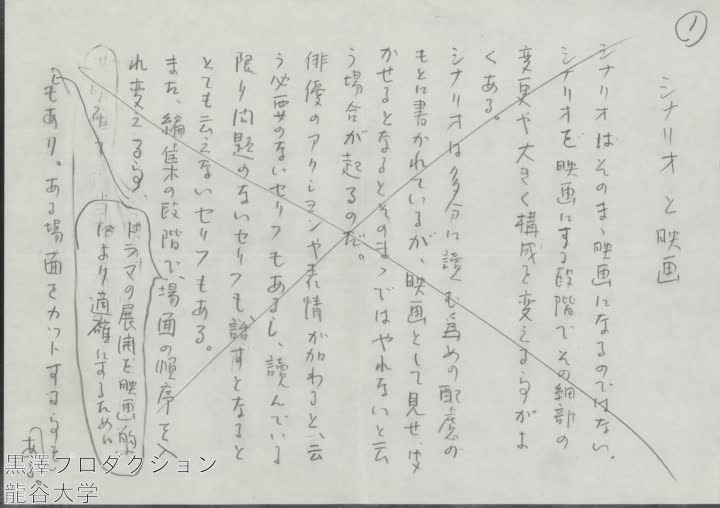 ①
シナリオと映画
シナリオはそのまゝ映画になるのではない。
シナリオを映画にする段階でその細部の
変更や大きく構成を変える事がよ
くある。
シナリオは多分に読む為めの配慮の
もとに書かれているが、映画として見せ、き
かせるとなるとそのまゝではやれないと云
う場合が起るのだ。
俳優のアクションや表情が加わると、云
う必要のないセリフもあるし、読んでいる
限り問題のないセリフも、話すとなると
とても云えないセリフもある。
また、編集の段階で、場面の順序を入
れ変える事、
ドラマの展開を映画的に
より適確にするために
もあり。ある場面をカットする事も
ある。
黒澤プロダクション
龍谷大学